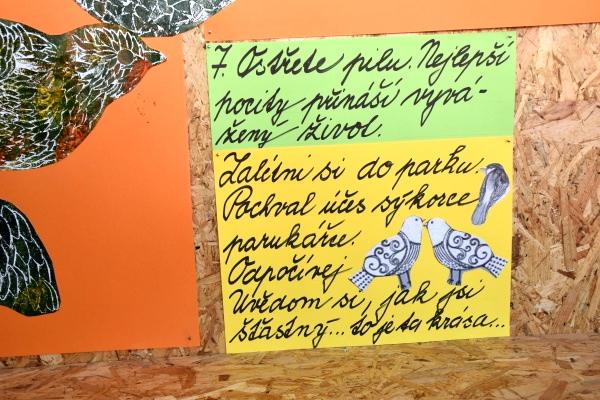 7. Ostřete pilu. Nejlepší
pocity přináší vyvá-
žený život.
Zalítni si do parku.
Pochval účes sýkorce
parukářce.
Odpočívej
Uvědom si, jak jsi
šťastný... to je ta krása...